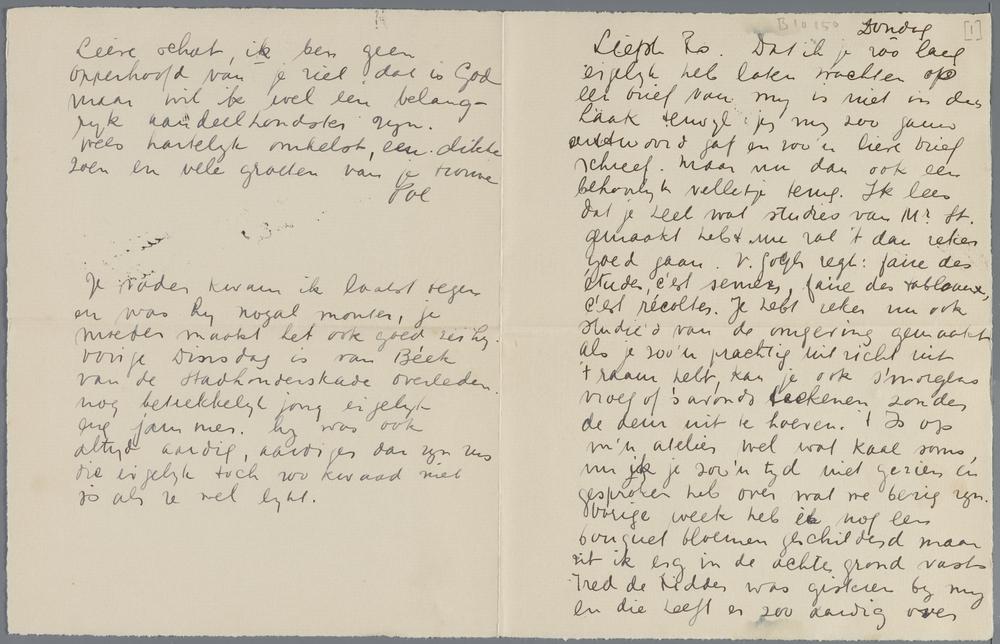 Lieve schat, ik ben geen
opperhoofd van je ziel dat is God
maar wil ik wel een belang-
ryk aandeelhoudster zyn.
Wees hartelyk omhelst, een dikke
zoen en vele groeten van je trouwe
Je vader kwam ik laatst tegen
en was hy nogal monter, je
moeder maakt het ook goed zei hy.
vorige Dinsdag is van Beek
van de Stadhouderskade overleden
nog betrekkelyk jong eigelyk
erg jammer. hy was ook
altyd aardig, aardiger dan zyn zus
die eigelyk toch zoo kwaad niet
is als ze wel lykt.
B10150
Zondag
[1]
Liefste Ro. Dat ik je zoo lang
eigelyk heb laten wachten op
een brief van my is niet in den
haak terwyl jy my zoo gauw
antwoord gaf en zoo'n lieve brief
schreef. Maar nu dan ook een
behoorlyk velletje terug. Ik lees
dat je heel wat studies van Mr. St.
gemaakt hebt. nu zal 't dan zeker
goed gaan. V. Gogh zegt: faire des
études, c'est semer, faire des tableaux,
c'est récolter. Je hebt zeker nu ook
studie's van de omgeving gemaakt
als je zoo'n prachtig uitzicht uit
't raam hebt, kan je ook s'morgens
vroeg of s'avonds teekenen zonder
de deur uit te hoeven. 't Is op
m'n atelier wel wat kaal soms,
nu ik je zoo'n tyd niet gezien en
gesproken heb over wat we bezig zyn.
Vorige week heb ik nog een
bouquet bloemen geschilderd maar
zit ik erg in de achtergrond vast.
Fred de Ridder was gisteren by my
en die heeft er zoo aardig over